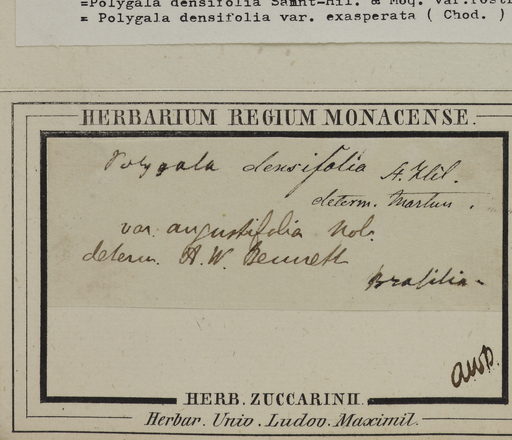 =Polygala densifolia Saint-Hil. & Moq. var.
= Polygala densifolia var. exasperata ( Chod. )
HERBARIUM REGIUM MONACENSE.
Polygala densifolia St. Hil.
determ. Martius.
var. angustifolia Nob.
determ. A. W. Bennett
Brasilia-
AWB.
HERB. ZUCCARINII.
Herbar. Univ. Ludov. Maximil.